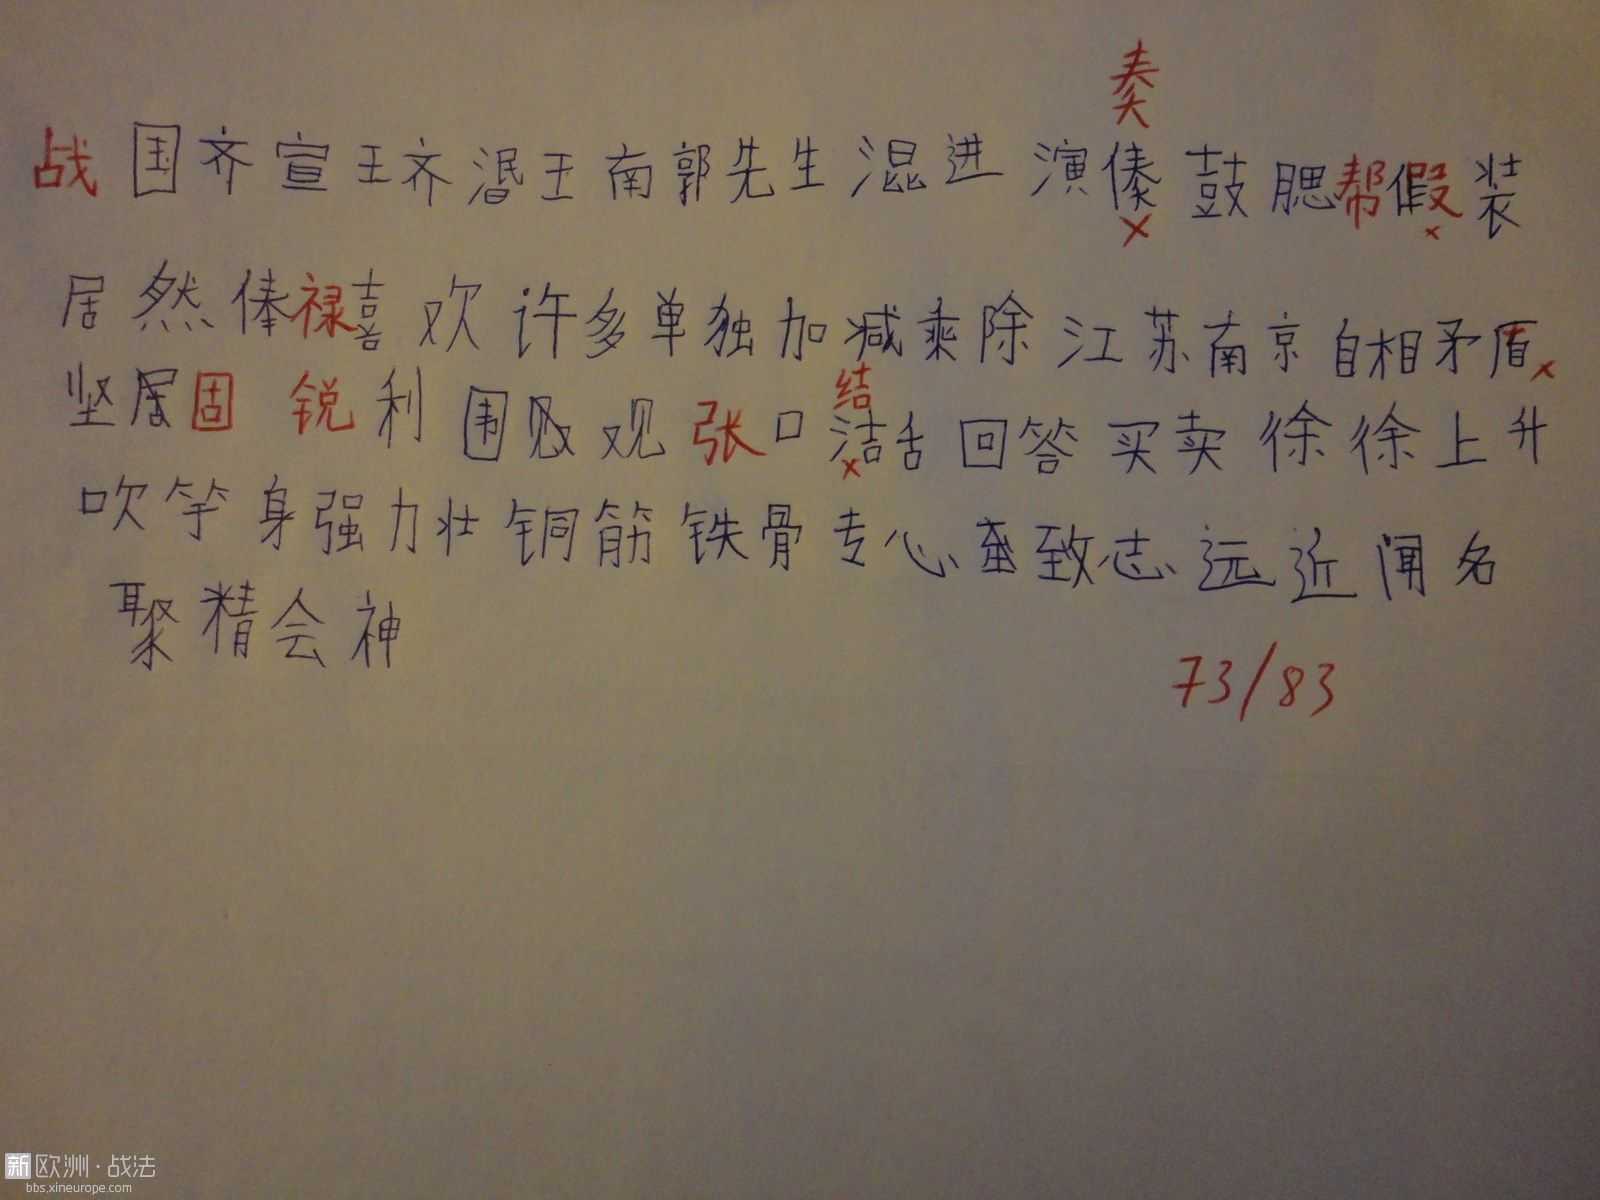 奏
战国齐宣王齐湣王南郭先生混进演傣鼓腮帮假装
居然俸禄喜欢许多单独加减乘除江苏南京自相矛盾
结
坚固锐利围观张口洁舌回答买卖徐徐上升
吹竽身强力壮铜筋铁骨专心致志远近闻名
聚精会神
73/83
新欧洲·战法
bbs.xineurope.com